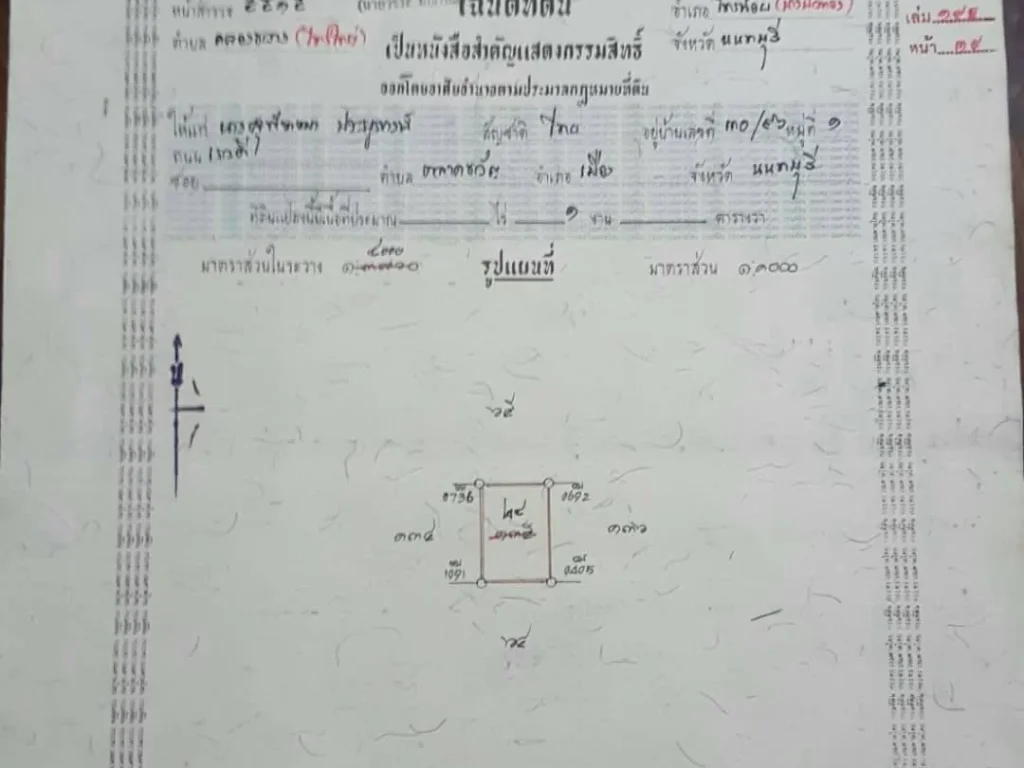 หน้าสำรวจ ๕๕๑๕
โฉนดที่ดิน
อำเภอ ไทรน้อย
เล่ม
ตำบล คลองขวาง (ไทรใหญ่)
เป็นหนังสือสำคัญแสดงกรรมสิทธิ์
จังหวัด นนทบุรี
หน้า ๒๙
ออกโดยอาศัยอำนาจตามประมวลกฎหมายที่ดิน
ให้แก่ สัญชาติ ไทย อยู่บ้านเลขที่ ๓๐/๙๖ หมู่ที่ ๑
ถนน
ซอย ตำบล ตลาดขวัญ อำเภอ เมือง จังหวัด นนทบุรี
ที่ดินแปลงนี้มีเนื้อที่ประมาณ ไร่ ๑ งาน ตารางวา
๔๐๐๐
มาตราส่วนในระวาง ๑: รูปแผนที่ มาตราส่วน ๑:๑๐๐๐
น
๖๕
0736 0692
๒๔
๑๓๔ ๑๓๖
1091
๖๔